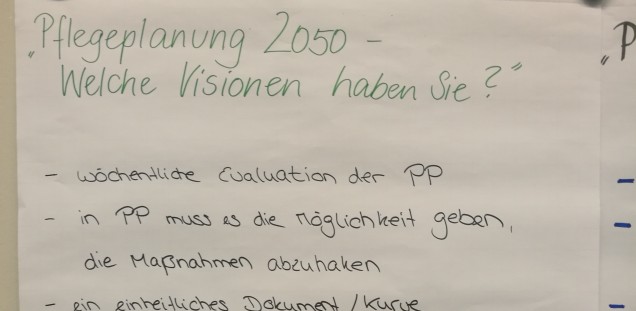 „Pflegeplanung 2050 –
Welche Visionen haben Sie?“
- wöchentliche Evaluation der PP
- in PP muss es die Möglichkeit geben,
die Maßnahmen abzuhaken
- ein einheitliches Dokument / Kurve
„P
-
-
-